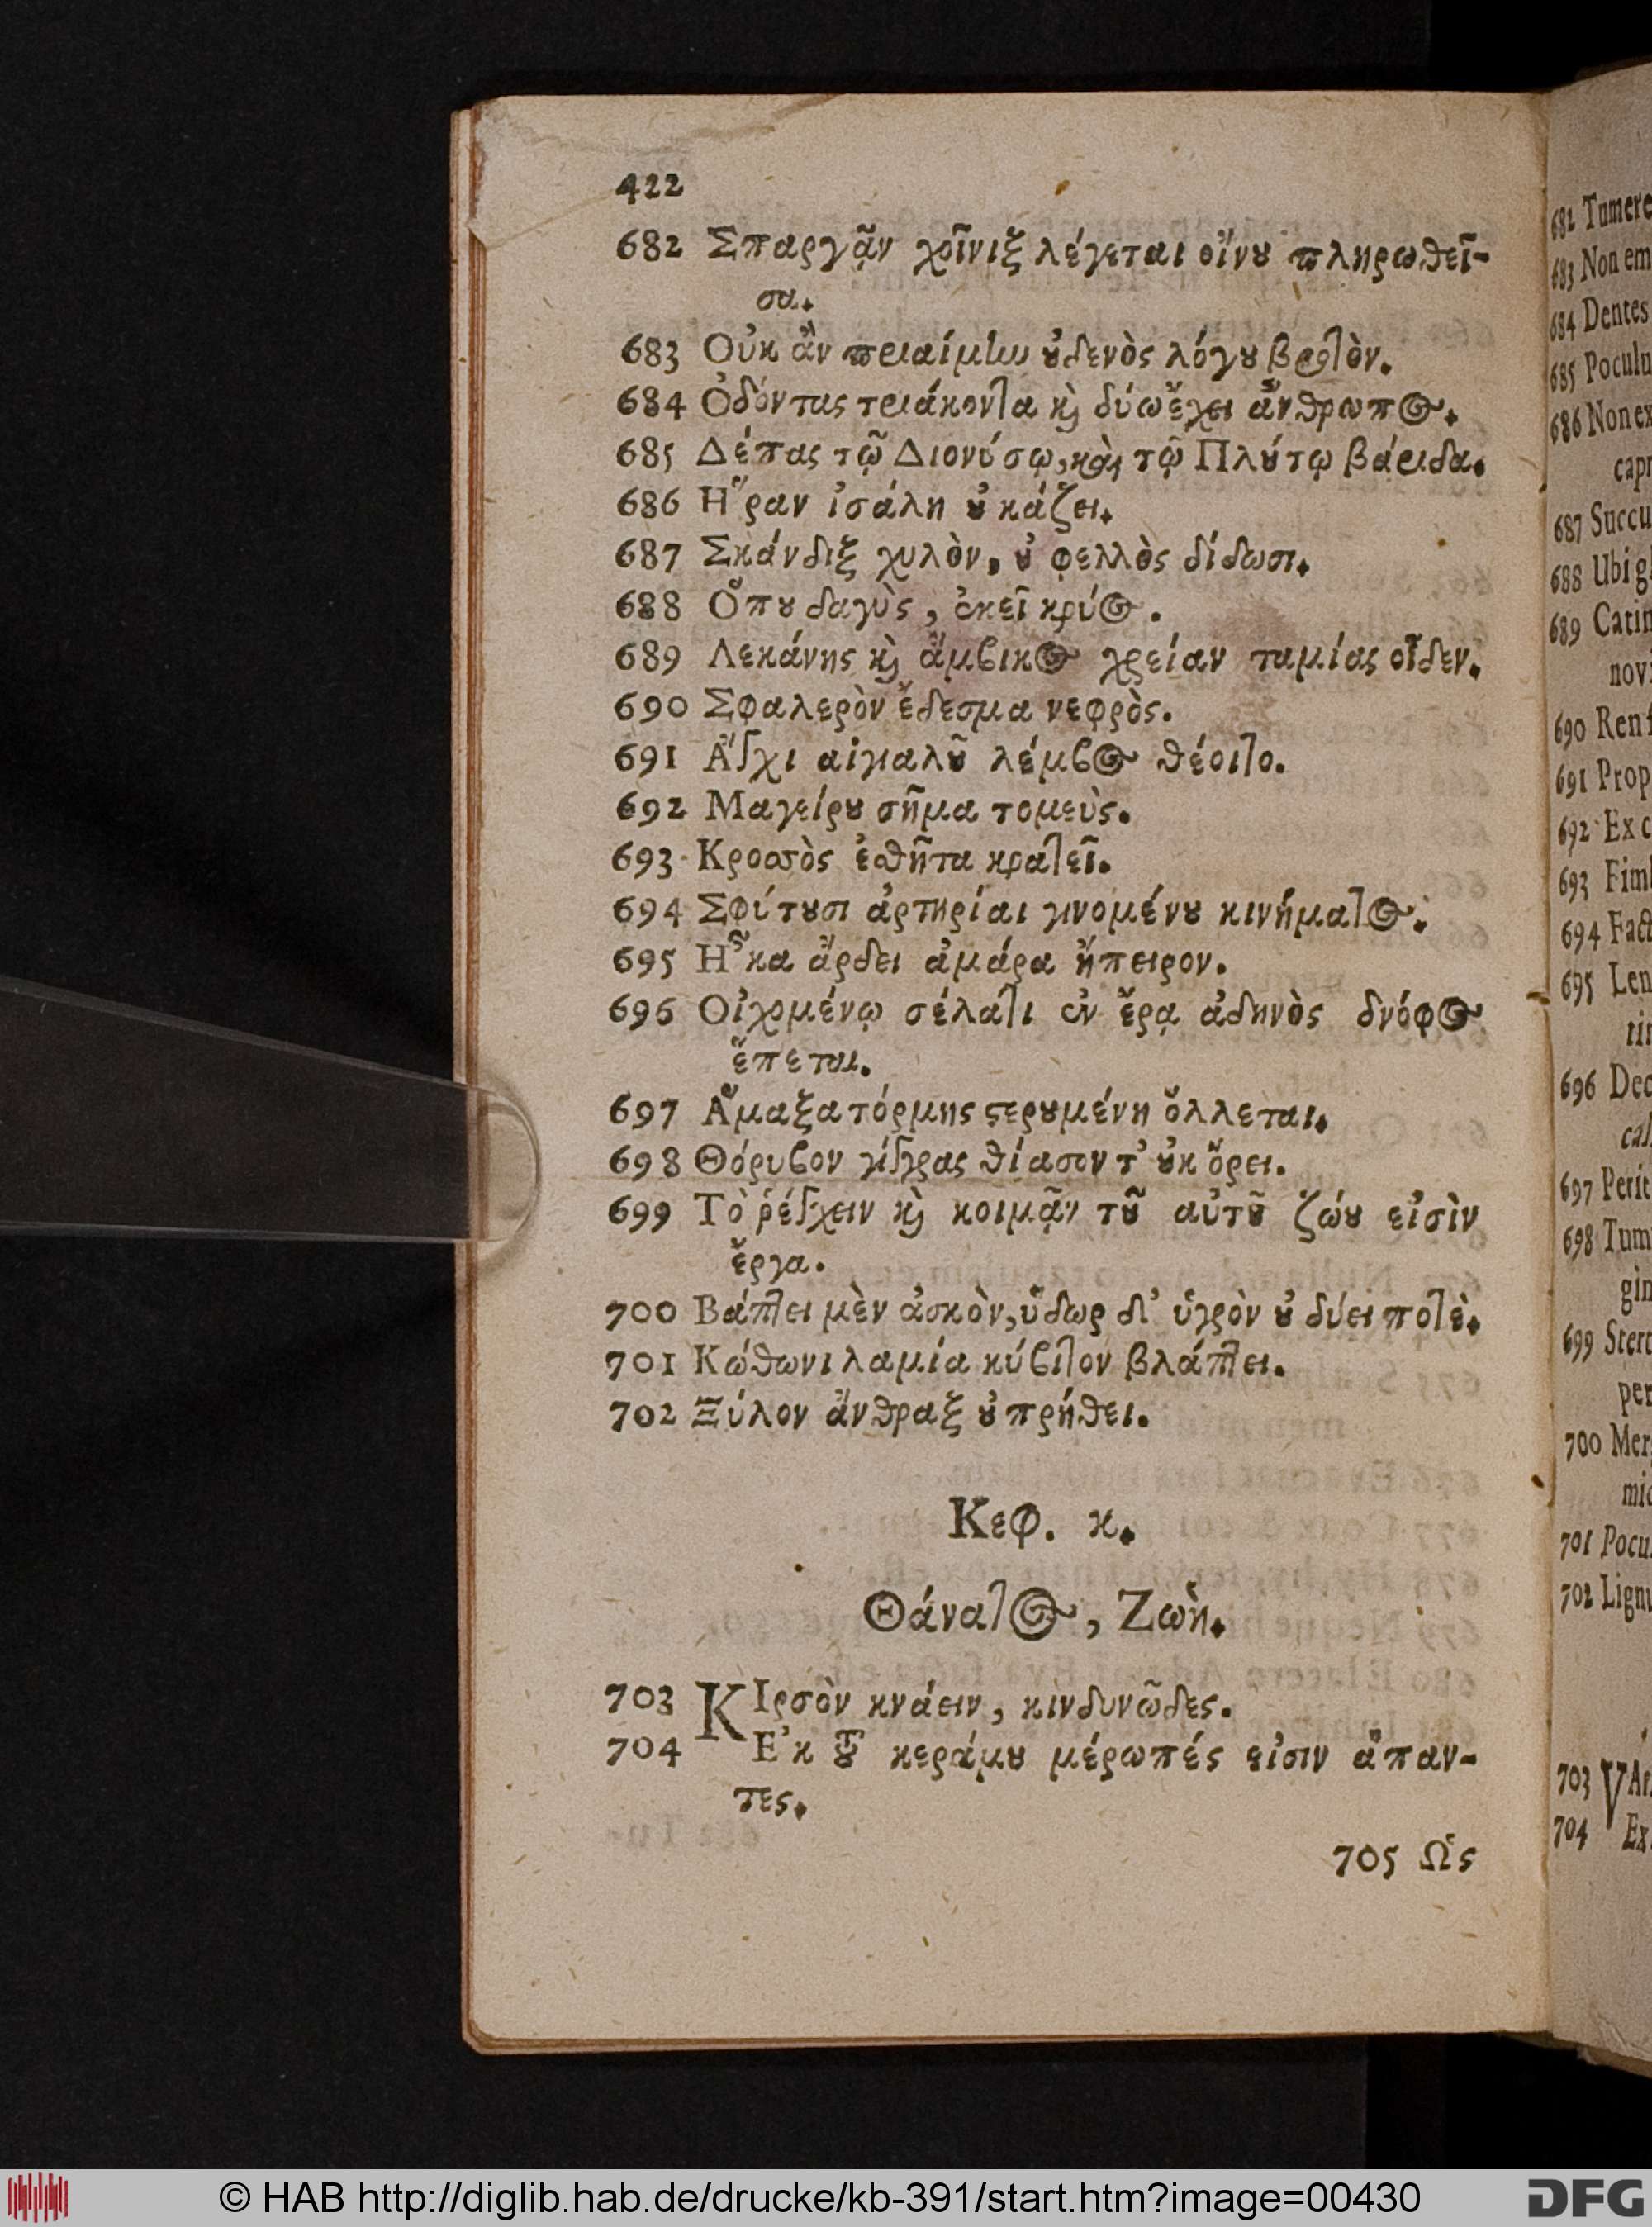 422
682 Σπαργᾷν χοῖνιξ λέγεται οἴνȣ πληρωθεῖ-
σα.
683 Οὐκ ἂν πριαίμην ȣ̓δενὸς λόγȣ βροτὸν.
684 Ὀδόντας τριάκοντα ϗ δύω ἔχει ἄνθρωπος.
685 Δέπας τῷ Διονύσῳ, καὶ τῷ Πλȣ́τῳ βάριδα.
686 Ηʺραν ἰσάλη ȣ̓ κάζει.
687 Σκάνδιξ χυλὸν, ȣ̓ φελλὸς δίδωσι.
688 Ὅπȣ δαγὺς, ἐκεῖ κρύος.
689 Λεκάνης ϗ ἄμβικος χρείαν ταμίας οἶδεν.
690 Σφαλερὸν ἔδεσμα νεφρὸς.
691 Ἄγχι αἰγιαλȣ͂ λέμβος θέοιτο.
692 Μαγείρȣ σῆμα τομεὺς.
693 Κροσσὸς ἐσθῆτα κρατεῖ.
694 Σφύτȣσι ἀρτηρίαι γινομένȣ κινήματος.
695 Ἦκα ἄρδει ἀμάρα ἤπειρον.
696 Οἰχομένῳ σέλατι ἐν ἔρᾳ ἀδηνὸς δνόφος
ἕπεται.
697 Ἅμαξα τόρμης ϛερȣμένη ὄλλεται.
698 Θόρυβον γίγγρας θίασόν τ' ȣ̓κ ὄρει.
699 Τὸ ῥέγχειν ϗ κοιμᾷν τȣ͂ αὐτȣ͂ ζώȣ εἰσὶν
ἔργα.
700 Βάπτει μὲν ἀσκὸν, ὕδωρ δι' ὑγρὸν ȣ̓ δύει ποτὲ.
701 Κώθωνι λαμία κύβιτον βλάπτει.
702 Ξύλον ἄνθραξ ȣ̓ πρήθει.
Κεφ. κ.
Θάνατος, Ζωὴ.
703 ΚΙρσὸν κνάειν, κινδυνῶδες.
704 Ἐκ τȣ͂ κεράμȣ μέρωπές εἰσιν ἅπαν-
τες.
705 Ὡς
682 Tumere
683 Non em
684 Dentes
685 Poculu
686 Non ex
capr
687 Succu
688 Ubi g
689 Catin
nov
690 Ren
691 Prop
692 Ex c
693 Fim
694 Fact
695 Len
rin
696 Dec
cal
697 Peric
698 Tum
gin
699 Sterc
per
700 Mer
mic
701 Pocu
702 Lign
703 VAr
704 Ex
© HAB http://diglib.hab.de/drucke/kb-391/start.htm?image=00430
DFG